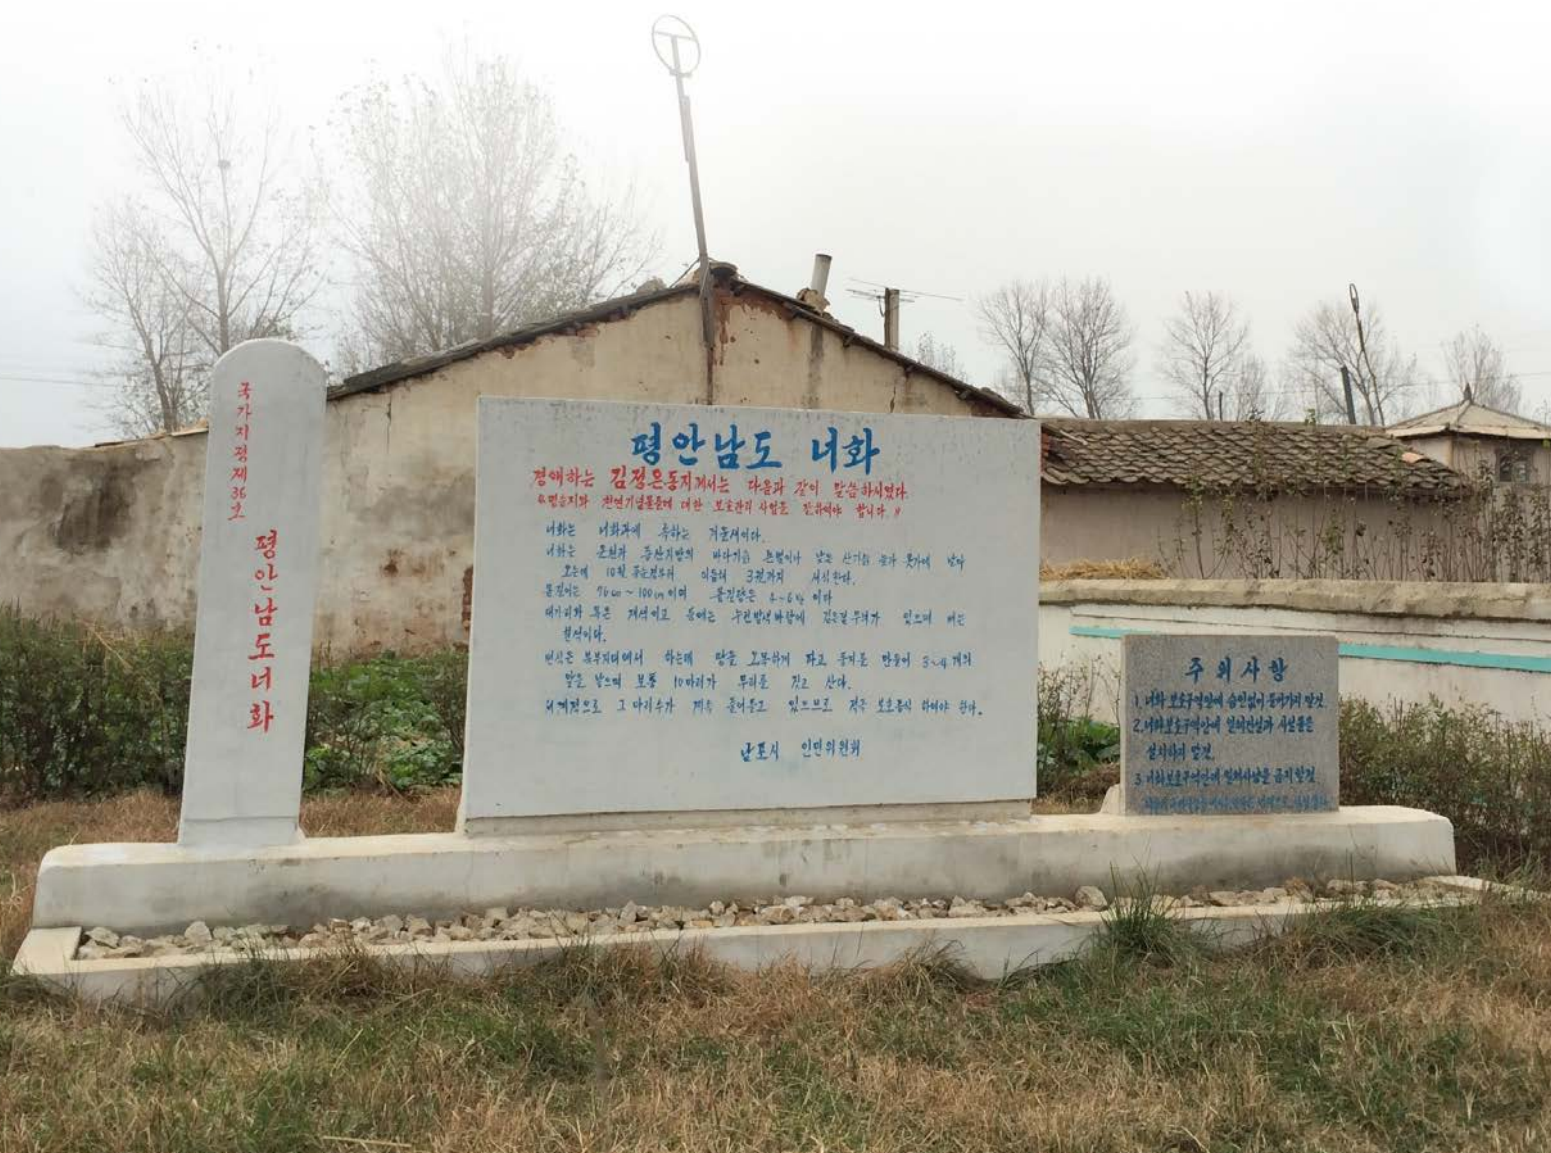 국가지정제36호
평안남도너화
평안남도 너화
경애하는 김정은동지께서는 다음과 같이 말씀하시였다.
《명승지와 천연기념물들에 대한 보호관리사업을 잘하여야 합니다.》
너화는 너화과에 속하는 겨울새이다.
너화는 온천과 증산지방의 바다기슭 논벌이나 낮은 산기슭
오는데 10월 중순경부터 이듬해 3월까지 서식한다.
몸길이는 76㎝~100㎝이며 몸질량은 4~6㎏이다
대가리와 목은 재색이고 등에는 누런밤색바탕에 검은갈무늬가 있으며 배는
흰색이다.
번식은 북부지대에서 하는데 땅을 오목하게 파고 둥지를 만들어 3~4개의
알을 낳으며 보통 10마리가 무리를 짓고 산다.
세계적으로 그 마리수가 계속 줄어들고 있으므로 적극 보호증식 하여야 한다.
남포시 인민위원회
주의사항
1. 너화 보호구역안에 승인없이 들어가지 말것
2. 너화보호구역안에 건설과 시설물을
설치하지 말것.
3. 너화보호구역안에서 사냥을 금지할것